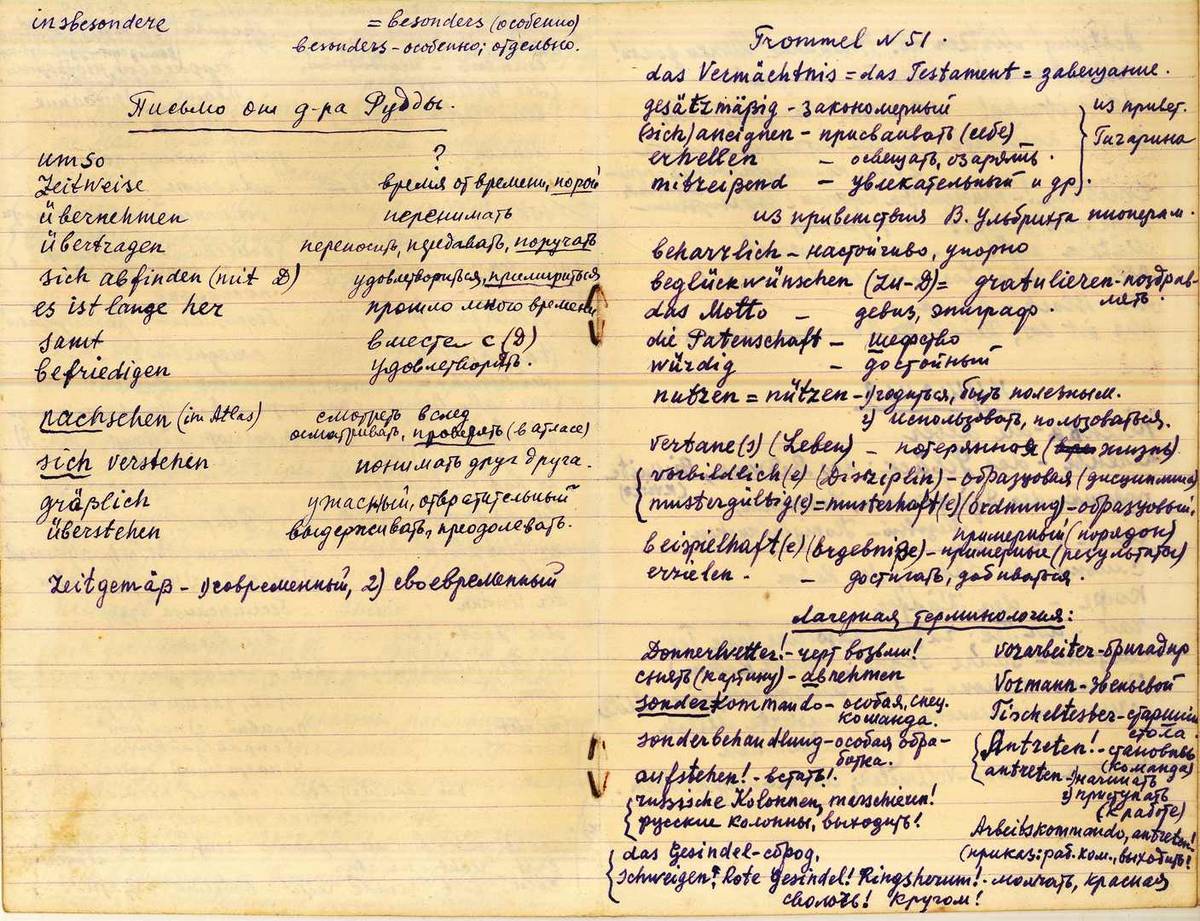 insbesondere = besonders (особенно)
besonders - особенно; отдельно.
Письмо от д-ра Фудды.
umso ?
Zeitweise время от времени, порой
übernehmen перенимать
übertragen переносить, передавать, поручать
sich abfinden (mit D) удовлетвориться, примириться
es ist lange her прошло много времени
samt вместе с (D)
befriedigen удовлетворять.
nachsehen (im Atlas) смотреть вслед
осматривать, проверять (в атласе)
sich verstehen понимать друг друга.
gräßlich ужасный, отвратительный
überstehen выдерживать, преодолевать.
Zeitgemäß - 1) современный, 2) своевременный
Trommel N 51.
das Vermächtnis = das Testament = завещание.
gesätzmäßig - закономерный
(sich) aneignen - присваивать (себе)
erhellen - освещать, озарять.
mitreißend - увлекательный и др.
из привет.
Гагарина
из приветствия В. Ульбрихта пионерам.
beharrlich - настойчиво, упорно
beglückwünschen (zu-D) = gratulieren - поздрав-
лять.
das Motto - девиз, эпиграф.
die Patenschaft - шефство
würdig - достойный
nutzen = nützen - 1) годиться, быть полезным.
2) использовать, пользоваться.
vertane(s) (Leben) - потерянная (жизнь)
vorbildlich(e) (Disziplin) - образцовая (дисциплина)
mustergültig(e) = musterhaft(e) (Ordnung) - образцовый,
примерный (порядок)
beispielhaft(e) (Ergebniße) - примерные (результаты)
erzielen. - достигать, добиваться.
Лагерная терминология:
Donnerwetter! - черт возьми!
снять (картину) - abnehmen
sonderkommando - особая, спец.
команда.
sonderbehandlung - особая обра-
ботка.
aufstehen! - встать!
russische Kolonnen, marschieren!
русские колонны, выходить!
das Gesindel - сброд,
schweigen! Rote Gesindel! Ringsherum! - молчать, красная
сволочь! Кругом!
Vorarbeiter - бригадир
Vormann - звеньевой
Tischeltester - старший
стола.
Antreten! - становись
(команда)
antreten - 1) начинать
2) приступать
(к работе)
Arbeitskommando, antreten!
(приказ: раб. ком., выходить!